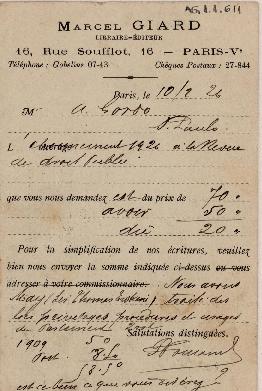 AG.1.1.611
MARCEL GIARD
LIBRAIRE-ÉDITEUR
16, Rue Soufflot, 16 — PARIS-Vᵉ
Téléphone : Gobelins 07-43 Chèques Postaux : 27-844
Paris, le 10/2 26
M A. Gordo
S. Paulo
L'abonnement 1926 à la Revue
de droit public
que vous nous demandez est du prix de 70 "
avoir 50 "
dû 20 "
Pour la simplification de nos écritures, veuillez
bien nous envoyer la somme indiquée ci-dessus ou vous
adresser à votre commissionnaire. Nous avons
traité des
lois, privilèges, procédures et usages
du Parlement
Salutations distinguées.
1909 50
Port 8.50
58.50
est ce bien ce que vous désirez ?